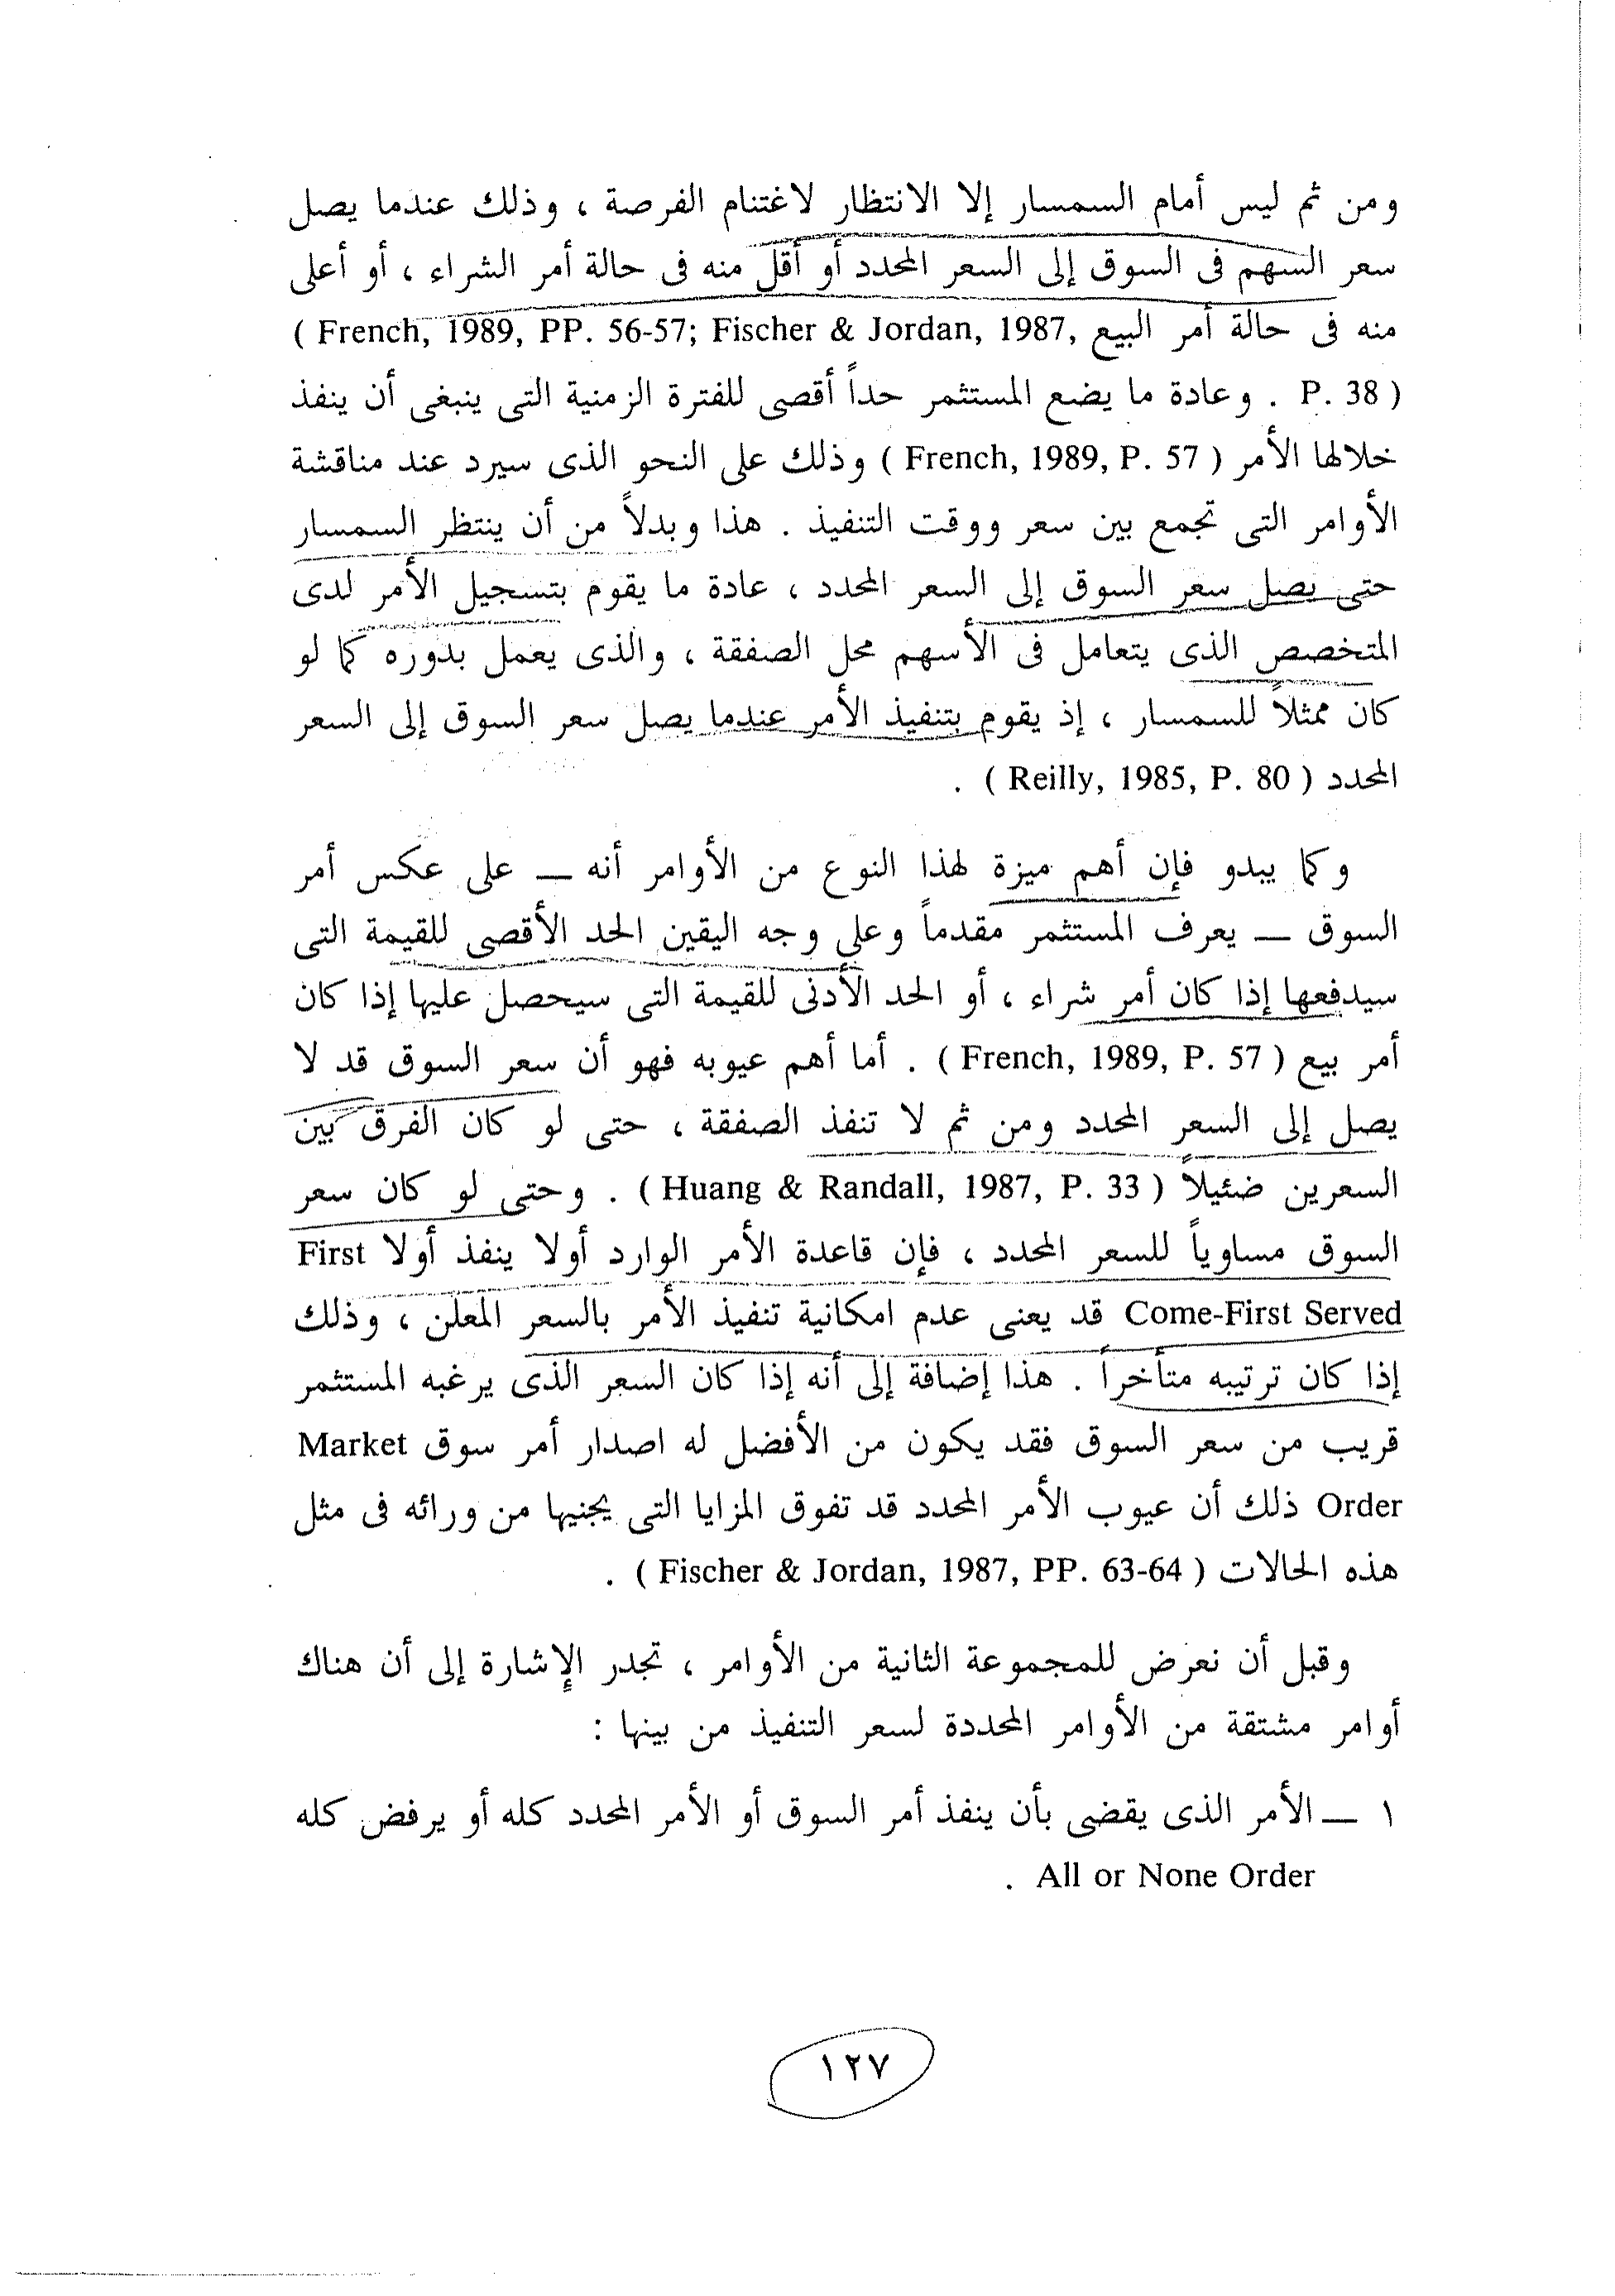 ومن ثم ليس أمام السمسار إلا الانتظار لاغتنام الفرصة ، وذلك عندما يصل
سعر السهم فى السوق إلى السعر المحدد أو أقل منه فى حالة أمر الشراء ، أو أعلى
منه فى حالة أمر البيع ( French, 1989, PP. 56-57; Fischer & Jordan, 1987,
P. 38 ) . وعادة ما يضع المستثمر حداً أقصى للفترة الزمنية التى ينبغى أن ينفذ
خلالها الأمر ( French, 1989, P. 57 ) وذلك على النحو الذى سيرد عند مناقشة
الأوامر التى تجمع بين سعر ووقت التنفيذ . هذا وبدلاً من أن ينتظر السمسار
حتى يصل سعر السوق إلى السعر المحدد ، عادة ما يقوم بتسجيل الأمر لدى
المتخصص الذى يتعامل فى الأسهم محل الصفقة ، والذى يعمل بدوره كما لو
كان ممثلاً للسمسار ، إذ يقوم بتنفيذ الأمر عندما يصل سعر السوق إلى السعر
المحدد ( Reilly, 1985, P. 80 ) .
وكما يبدو فإن أهم ميزة لهذا النوع من الأوامر أنه — على عكس أمر
السوق — يعرف المستثمر مقدماً وعلى وجه اليقين الحد الأقصى للقيمة التى
سيدفعها إذا كان أمر شراء ، أو الحد الأدنى للقيمة التى سيحصل عليها إذا كان
أمر بيع ( French, 1989, P. 57 ) . أما أهم عيوبه فهو أن سعر السوق قد لا
يصل إلى السعر المحدد ومن ثم لا تنفذ الصفقة ، حتى لو كان الفرق بين
السعرين ضئيلاً ( Huang & Randall, 1987, P. 33 ) . وحتى لو كان سعر
السوق مساوياً للسعر المحدد ، فإن قاعدة الأمر الوارد أولا ينفذ أولا First
Come-First Served قد يعنى عدم امكانية تنفيذ الأمر بالسعر المعلن ، وذلك
إذا كان ترتيبه متأخراً . هذا إضافة إلى أنه إذا كان السعر الذى يرغبه المستثمر
قريب من سعر السوق فقد يكون من الأفضل له اصدار أمر سوق Market
Order ذلك أن عيوب الأمر المحدد قد تفوق المزايا التى يجنيها من ورائه فى مثل
هذه الحالات ( Fischer & Jordan, 1987, PP. 63-64 ) .
وقبل أن نعرض للمجموعة الثانية من الأوامر ، تجدر الإشارة إلى أن هناك
أوامر مشتقة من الأوامر المحددة لسعر التنفيذ من بينها :
١ — الأمر الذى يقضى بأن ينفذ أمر السوق أو الأمر المحدد كله أو يرفض كله
All or None Order .
١٢٧